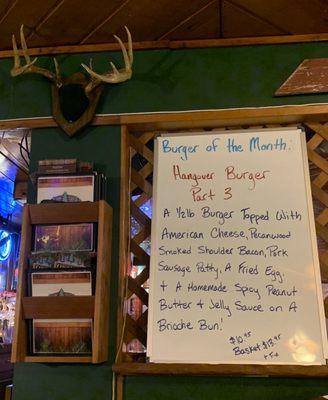 Burger of the Month:
Hangover Burger
Part 3
A 1/2lb Burger Topped With
American Cheese, Pecanwood
Smoked Shoulder Bacon, Pork
Sausage Patty, A Fried Egg,
+ A Homemade Spicy Peanut
Butter + Jelly Sauce on A
Brioche Bun!
$10.95
Basket $13.95